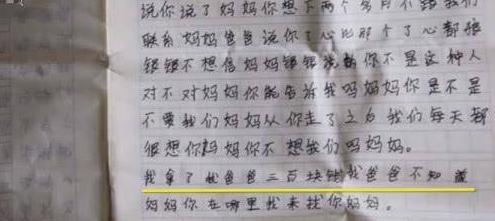 说你说了妈妈你想下两个多月不跟我们
联系妈妈爸爸说你了心比那个了心都狠
银银不想信妈妈银银说的你不是这种人
对不对妈妈你能告诉我吗妈妈你是不是
不要我们妈妈从你走了之为我们每天都
很想你妈妈你不想我们吗妈妈。
我拿了我爸爸三百块钱我爸爸不知道
妈妈你在哪里我来找你妈妈。